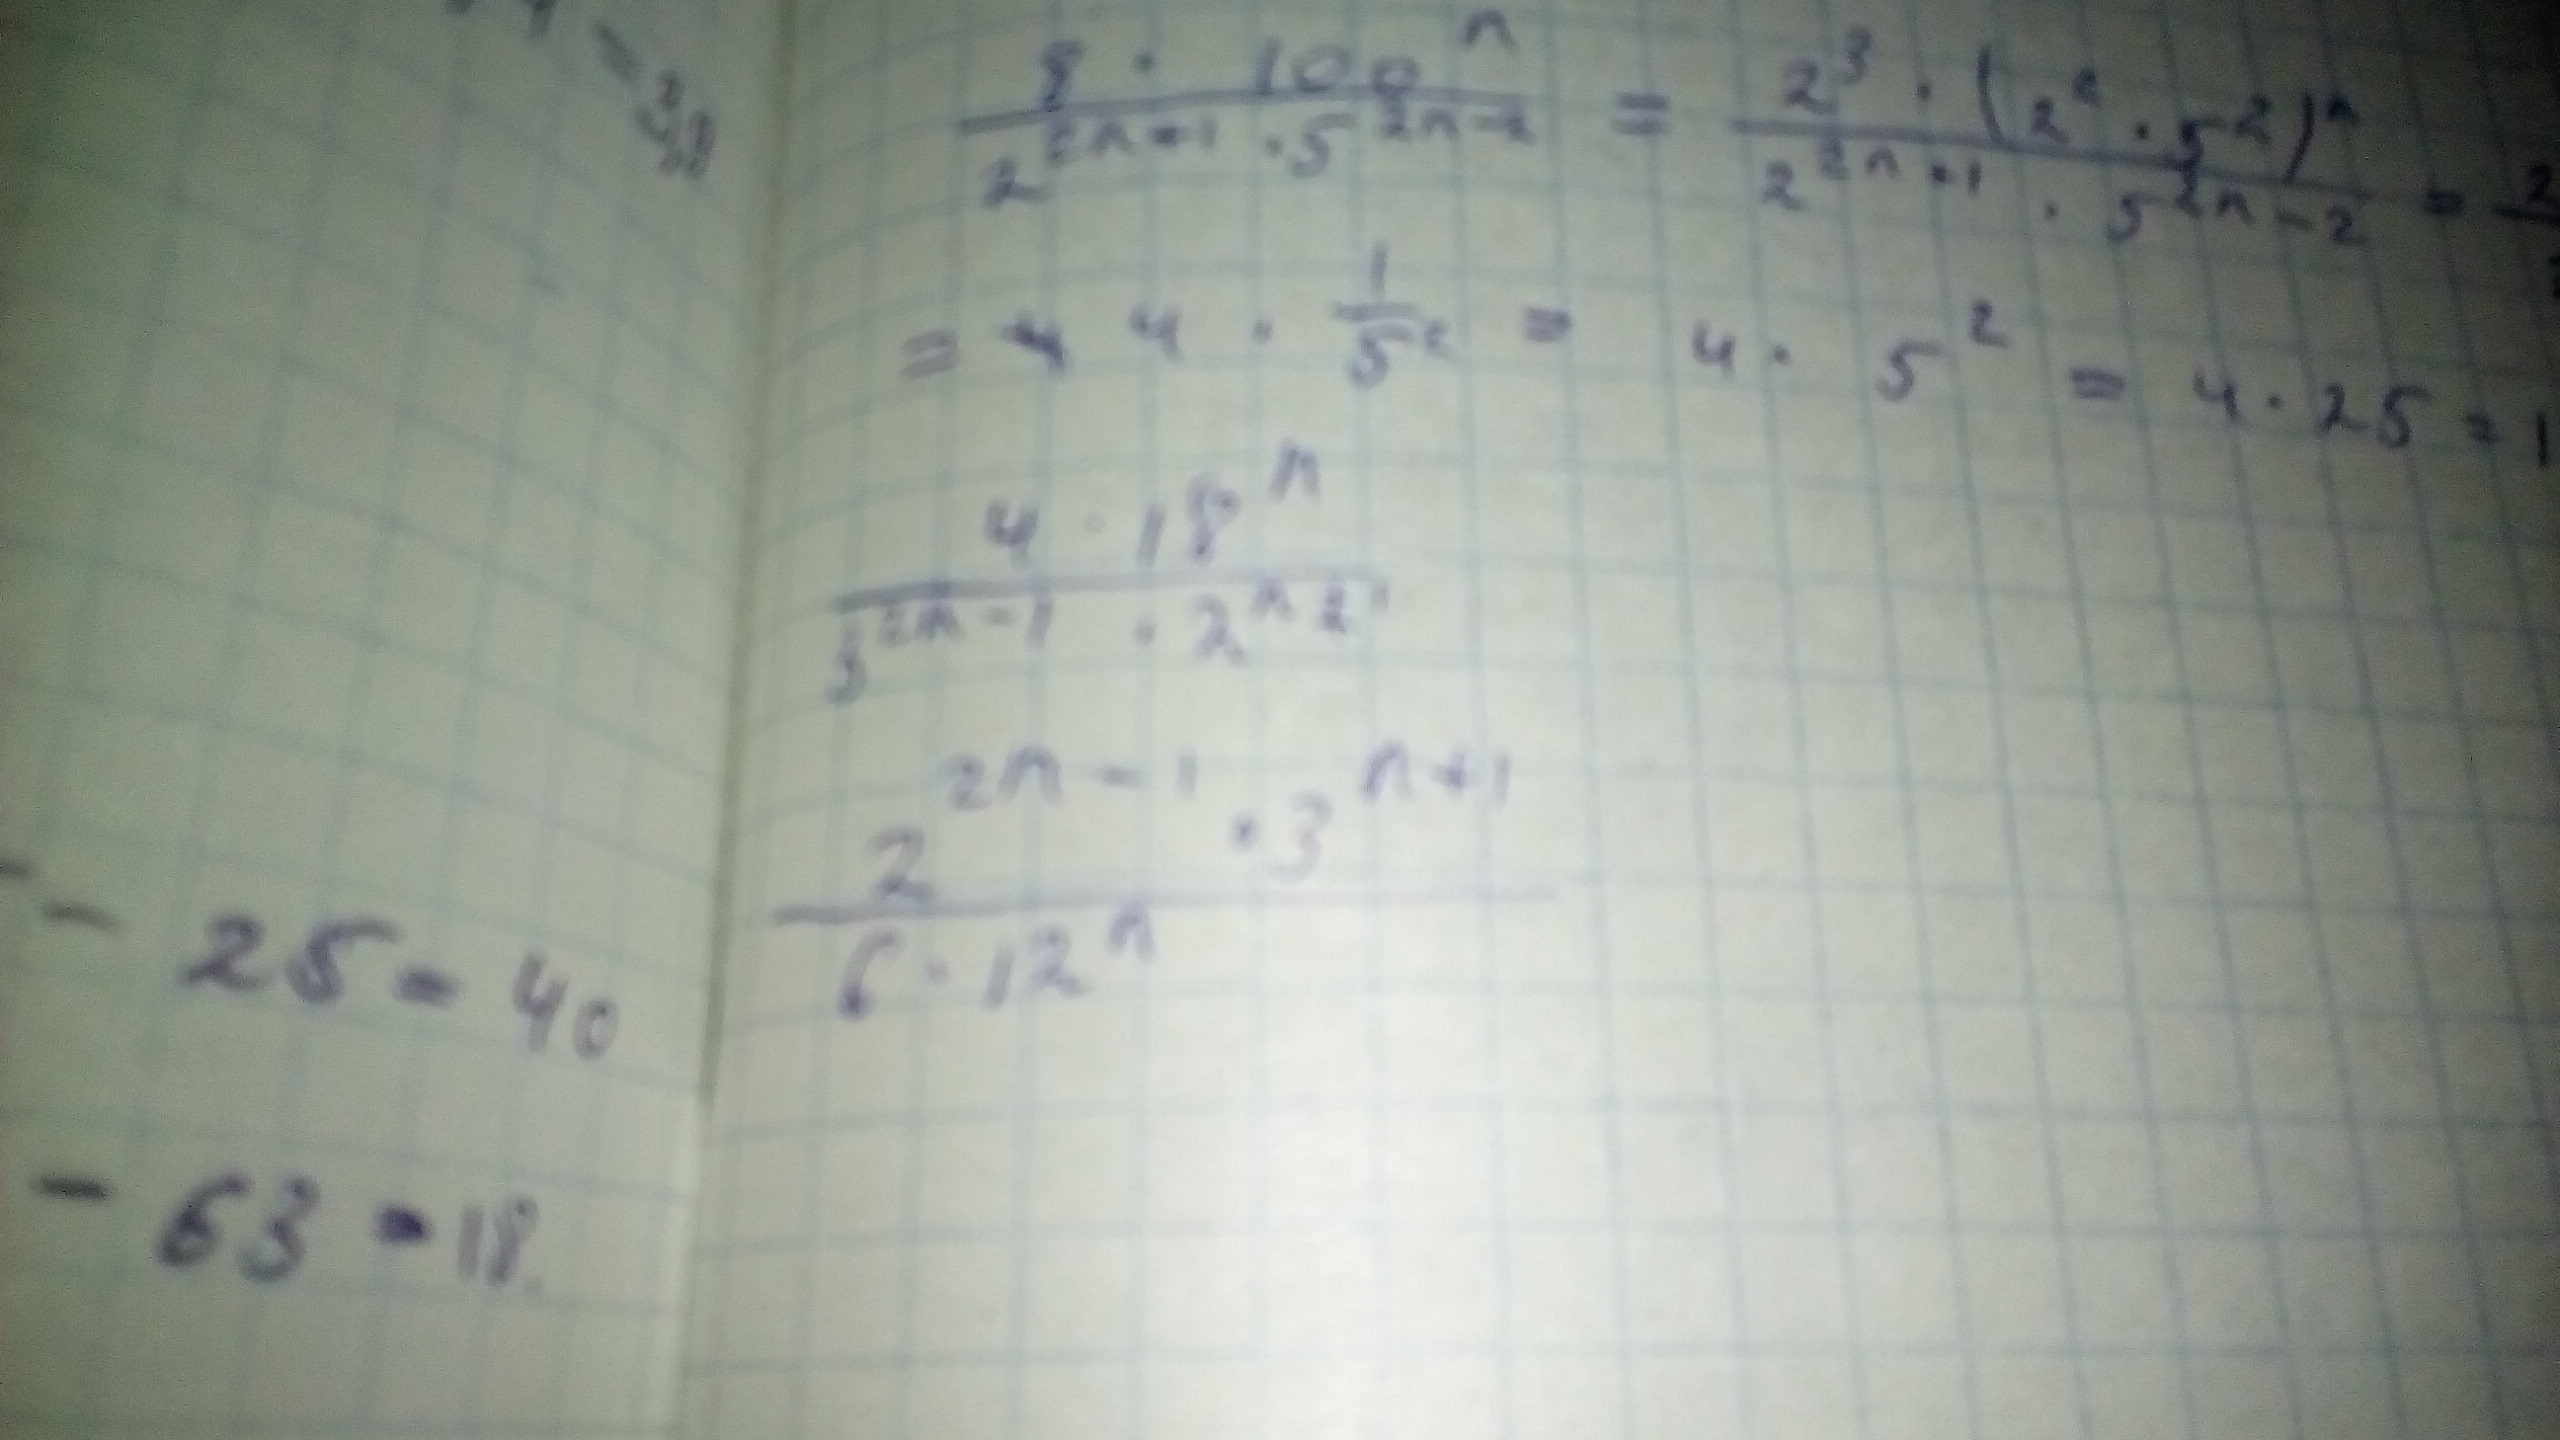 8 · 100^n / 2^(2n+1) · 5^(2n-2) = 2^3 · (2^2 · 5^2)^n / 2^(2n+1) · 5^(2n-2) = 2
= 4 · 1/5^2 = 4 · 5^2 = 4 · 25 = 1
4 · 18^n / 3^(2n-1) · 2^n
2^(2n-1) · 3^(n+1) / 6 · 12^n
- 25 = 40
- 63 = 18